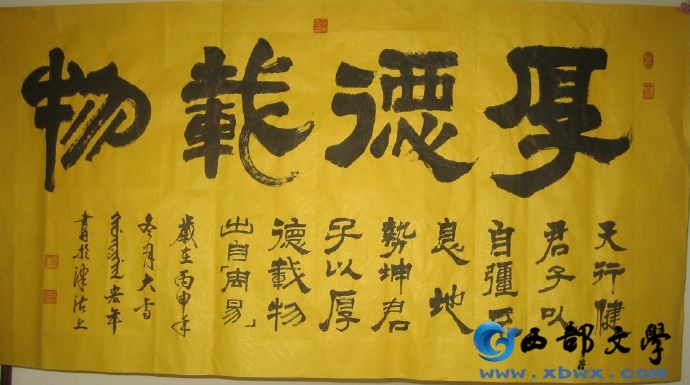 厚德載物
天行健
君子以
自彊不
息地
勢坤君
子以厚
德載物
出自周易
歲在丙申年
冬月大雪
書於津沽上
西部文學
www.xbwx.com